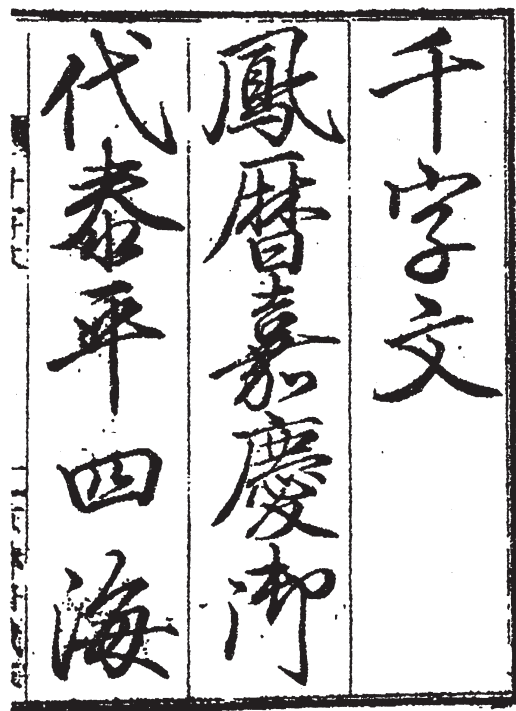 千字文
鳳暦嘉慶御
代泰平四海